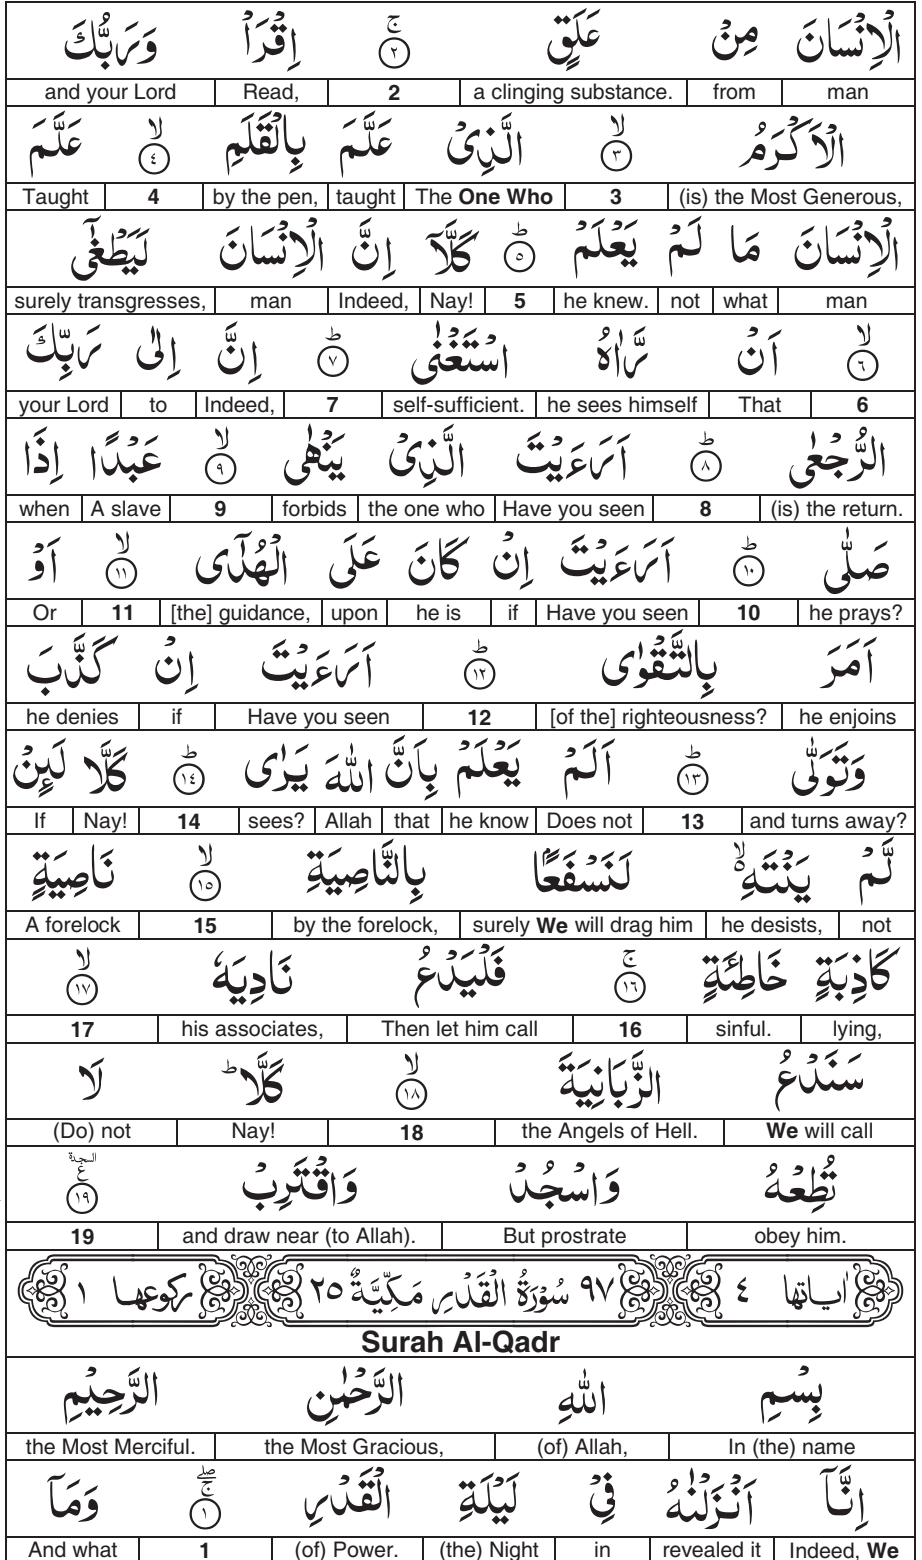 الْاِنْسَانَ مِنْ عَلَقٍ ۚ ﴿٢﴾ اِقْرَاْ وَرَبُّكَ
man from a clinging substance. 2 Read, and your Lord
الْاَكْرَمُ ۙ ﴿٣﴾ الَّذِيْ عَلَّمَ بِالْقَلَمِ ۙ ﴿٤﴾ عَلَّمَ
(is) the Most Generous, 3 The One Who taught by the pen, 4 Taught
الْاِنْسَانَ مَا لَمْ يَعْلَمْ ؕ ﴿٥﴾ كَلَّاۤ اِنَّ الْاِنْسَانَ لَيَطْغٰۤى
man what not he knew. 5 Nay! Indeed, man surely transgresses,
ۙ ﴿٦﴾ اَنْ رَّاٰهُ اسْتَغْنٰى ؕ ﴿٧﴾ اِنَّ اِلٰى رَبِّكَ
6 That he sees himself self-sufficient. 7 Indeed, to your Lord
الرُّجْعٰى ؕ ﴿٨﴾ اَرَءَيْتَ الَّذِيْ يَنْهٰى ۙ ﴿٩﴾ عَبْدًا اِذَا
(is) the return. 8 Have you seen the one who forbids 9 A slave when
صَلّٰى ؕ ﴿١٠﴾ اَرَءَيْتَ اِنْ كَانَ عَلَى الْهُدٰۤى ۙ ﴿١١﴾ اَوْ
he prays? 10 Have you seen if he is upon [the] guidance, 11 Or
اَمَرَ بِالتَّقْوٰى ؕ ﴿١٢﴾ اَرَءَيْتَ اِنْ كَذَّبَ
he enjoins [of the] righteousness? 12 Have you seen if he denies
وَتَوَلّٰى ؕ ﴿١٣﴾ اَلَمْ يَعْلَمْ بِاَنَّ اللّٰهَ يَرٰى ؕ ﴿١٤﴾ كَلَّا لَئِنْ
and turns away? 13 Does not he know that Allah sees? 14 Nay! If
لَّمْ يَنْتَهِ ۙ۬ لَنَسْفَعًۢا بِالنَّاصِيَةِ ۙ ﴿١٥﴾ نَاصِيَةٍ
not he desists, surely We will drag him by the forelock, 15 A forelock
كَاذِبَةٍ خَاطِئَةٍ ۚ ﴿١٦﴾ فَلْيَدْعُ نَادِيَهٗ ۙ ﴿١٧﴾
lying, sinful. 16 Then let him call his associates, 17
سَنَدْعُ الزَّبَانِيَةَ ۙ ﴿١٨﴾ كَلَّا ؕ لَا
We will call the Angels of Hell. 18 Nay! (Do) not
تُطِعْهُ وَاسْجُدْ وَاقْتَرِبْ السجدة ع ﴿١٩﴾
obey him. But prostrate and draw near (to Allah). 19
اٰياتها ٤ ٩٧ سُوْرَةُ الْقَدْرِ مَكِّيَّةٌ ٢٥ ركوعها ١
Surah Al-Qadr
بِسْمِ اللّٰهِ الرَّحْمٰنِ الرَّحِيْمِ
In (the) name (of) Allah, the Most Gracious, the Most Merciful.
اِنَّاۤ اَنْزَلْنٰهُ فِيْ لَيْلَةِ الْقَدْرِ ۖۚ ﴿١﴾ وَمَاۤ
Indeed, We revealed it in (the) Night (of) Power. 1 And what